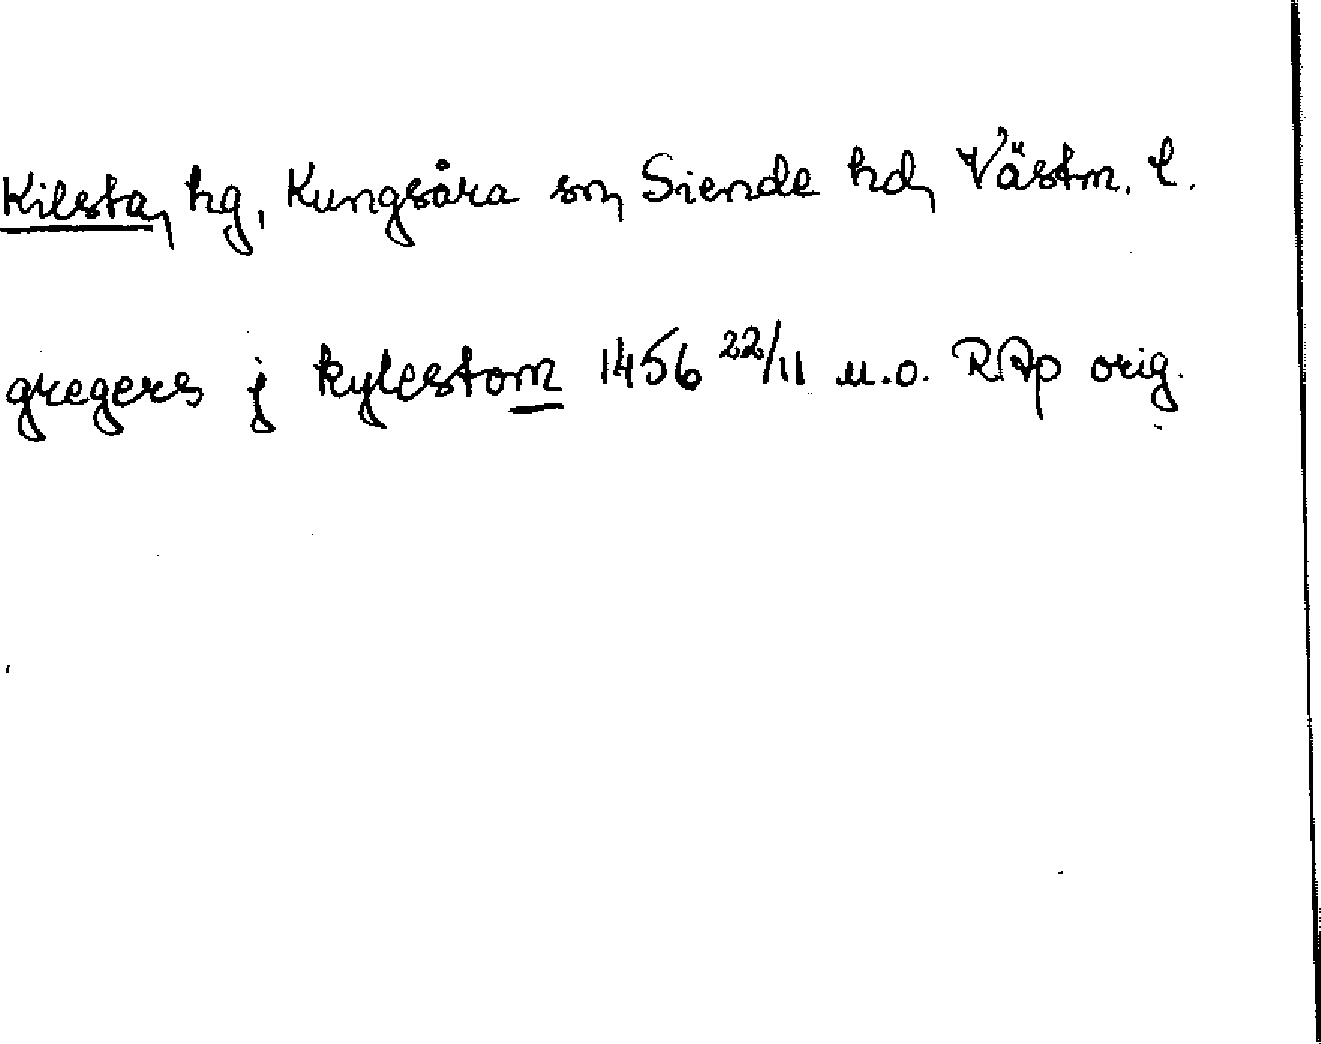 Kilsta, hg, Kungsåra sn, Siende hd, Västm. l.
gregers j kylestom 1456 22/11 u.o. RAp orig.